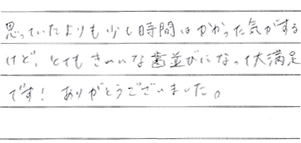 思っていたよりも少し時間はかかった気がする
けど、とてもきれいな歯並びになって大満足
です！ ありがとうございました。